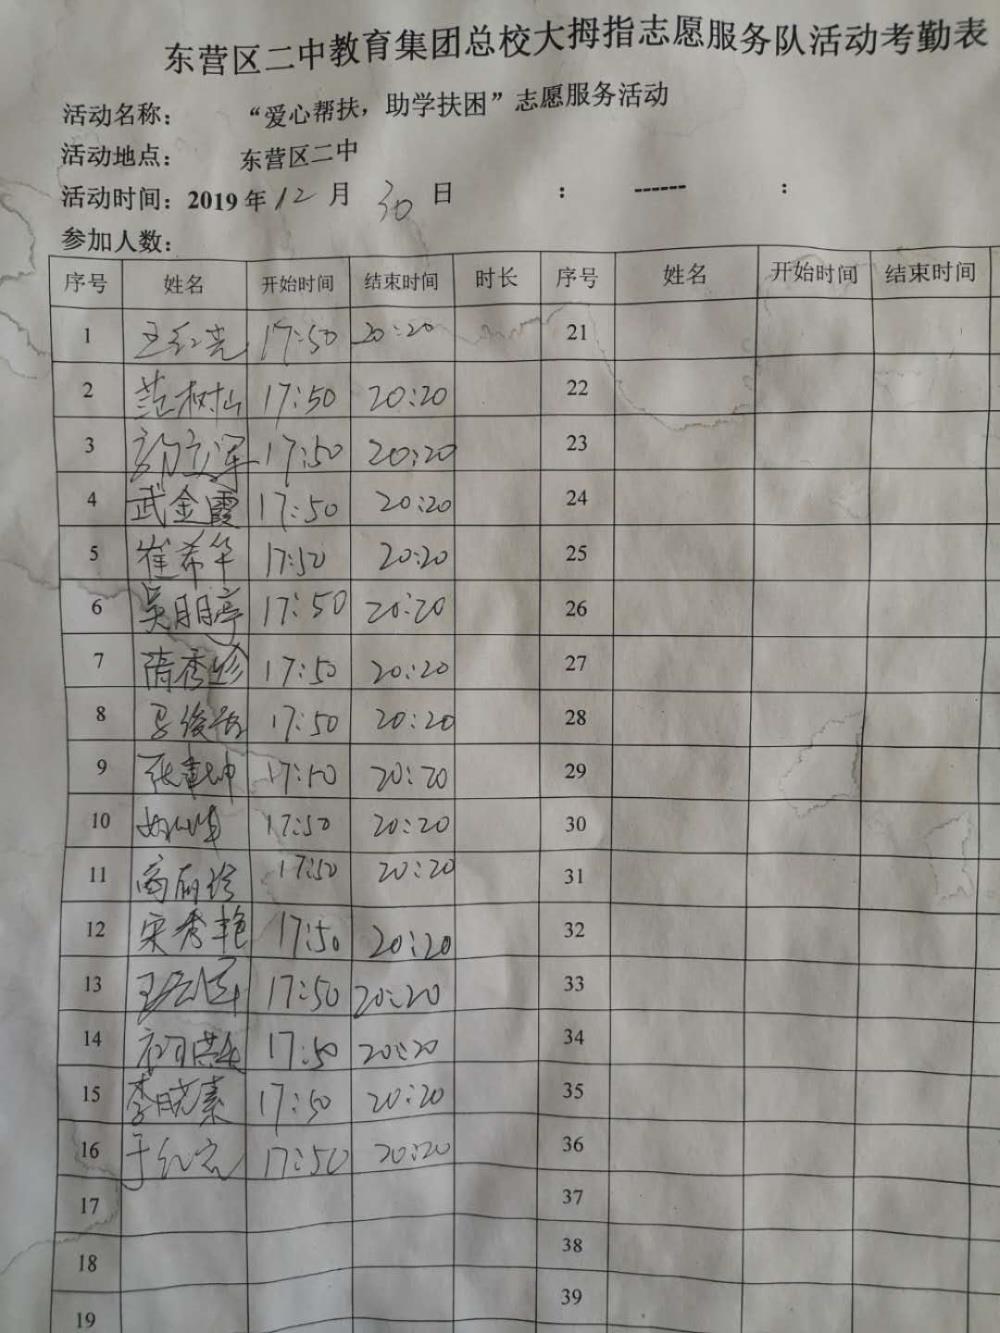 东营区二中教育集团总校大拇指志愿服务队活动考勤表
活动名称： “爱心帮扶，助学扶困”志愿服务活动
活动地点： 东营区二中
活动时间：2019年12月30日 ： ------ ：
参加人数：
序号 姓名 开始时间 结束时间 时长 序号 姓名 开始时间 结束时间
1 王红亮 17:50 20:20 21
2 范树山 17:50 20:20 22
3 17:50 20:20 23
4 武金霞 17:50 20:20 24
5 崔希华 17:50 20:20 25
6 吴明亭 17:50 20:20 26
7 隋秀珍 17:50 20:20 27
8 17:50 20:20 28
9 张乾坤 17:50 20:20 29
10 17:50 20:20 30
11 高丽珍 17:50 20:20 31
12 宋秀艳 17:50 20:20 32
13 17:50 20:20 33
14 17:50 20:20 34
15 李晓素 17:50 20:20 35
16 17:50 20:20 36
17 37
18 38
19 39